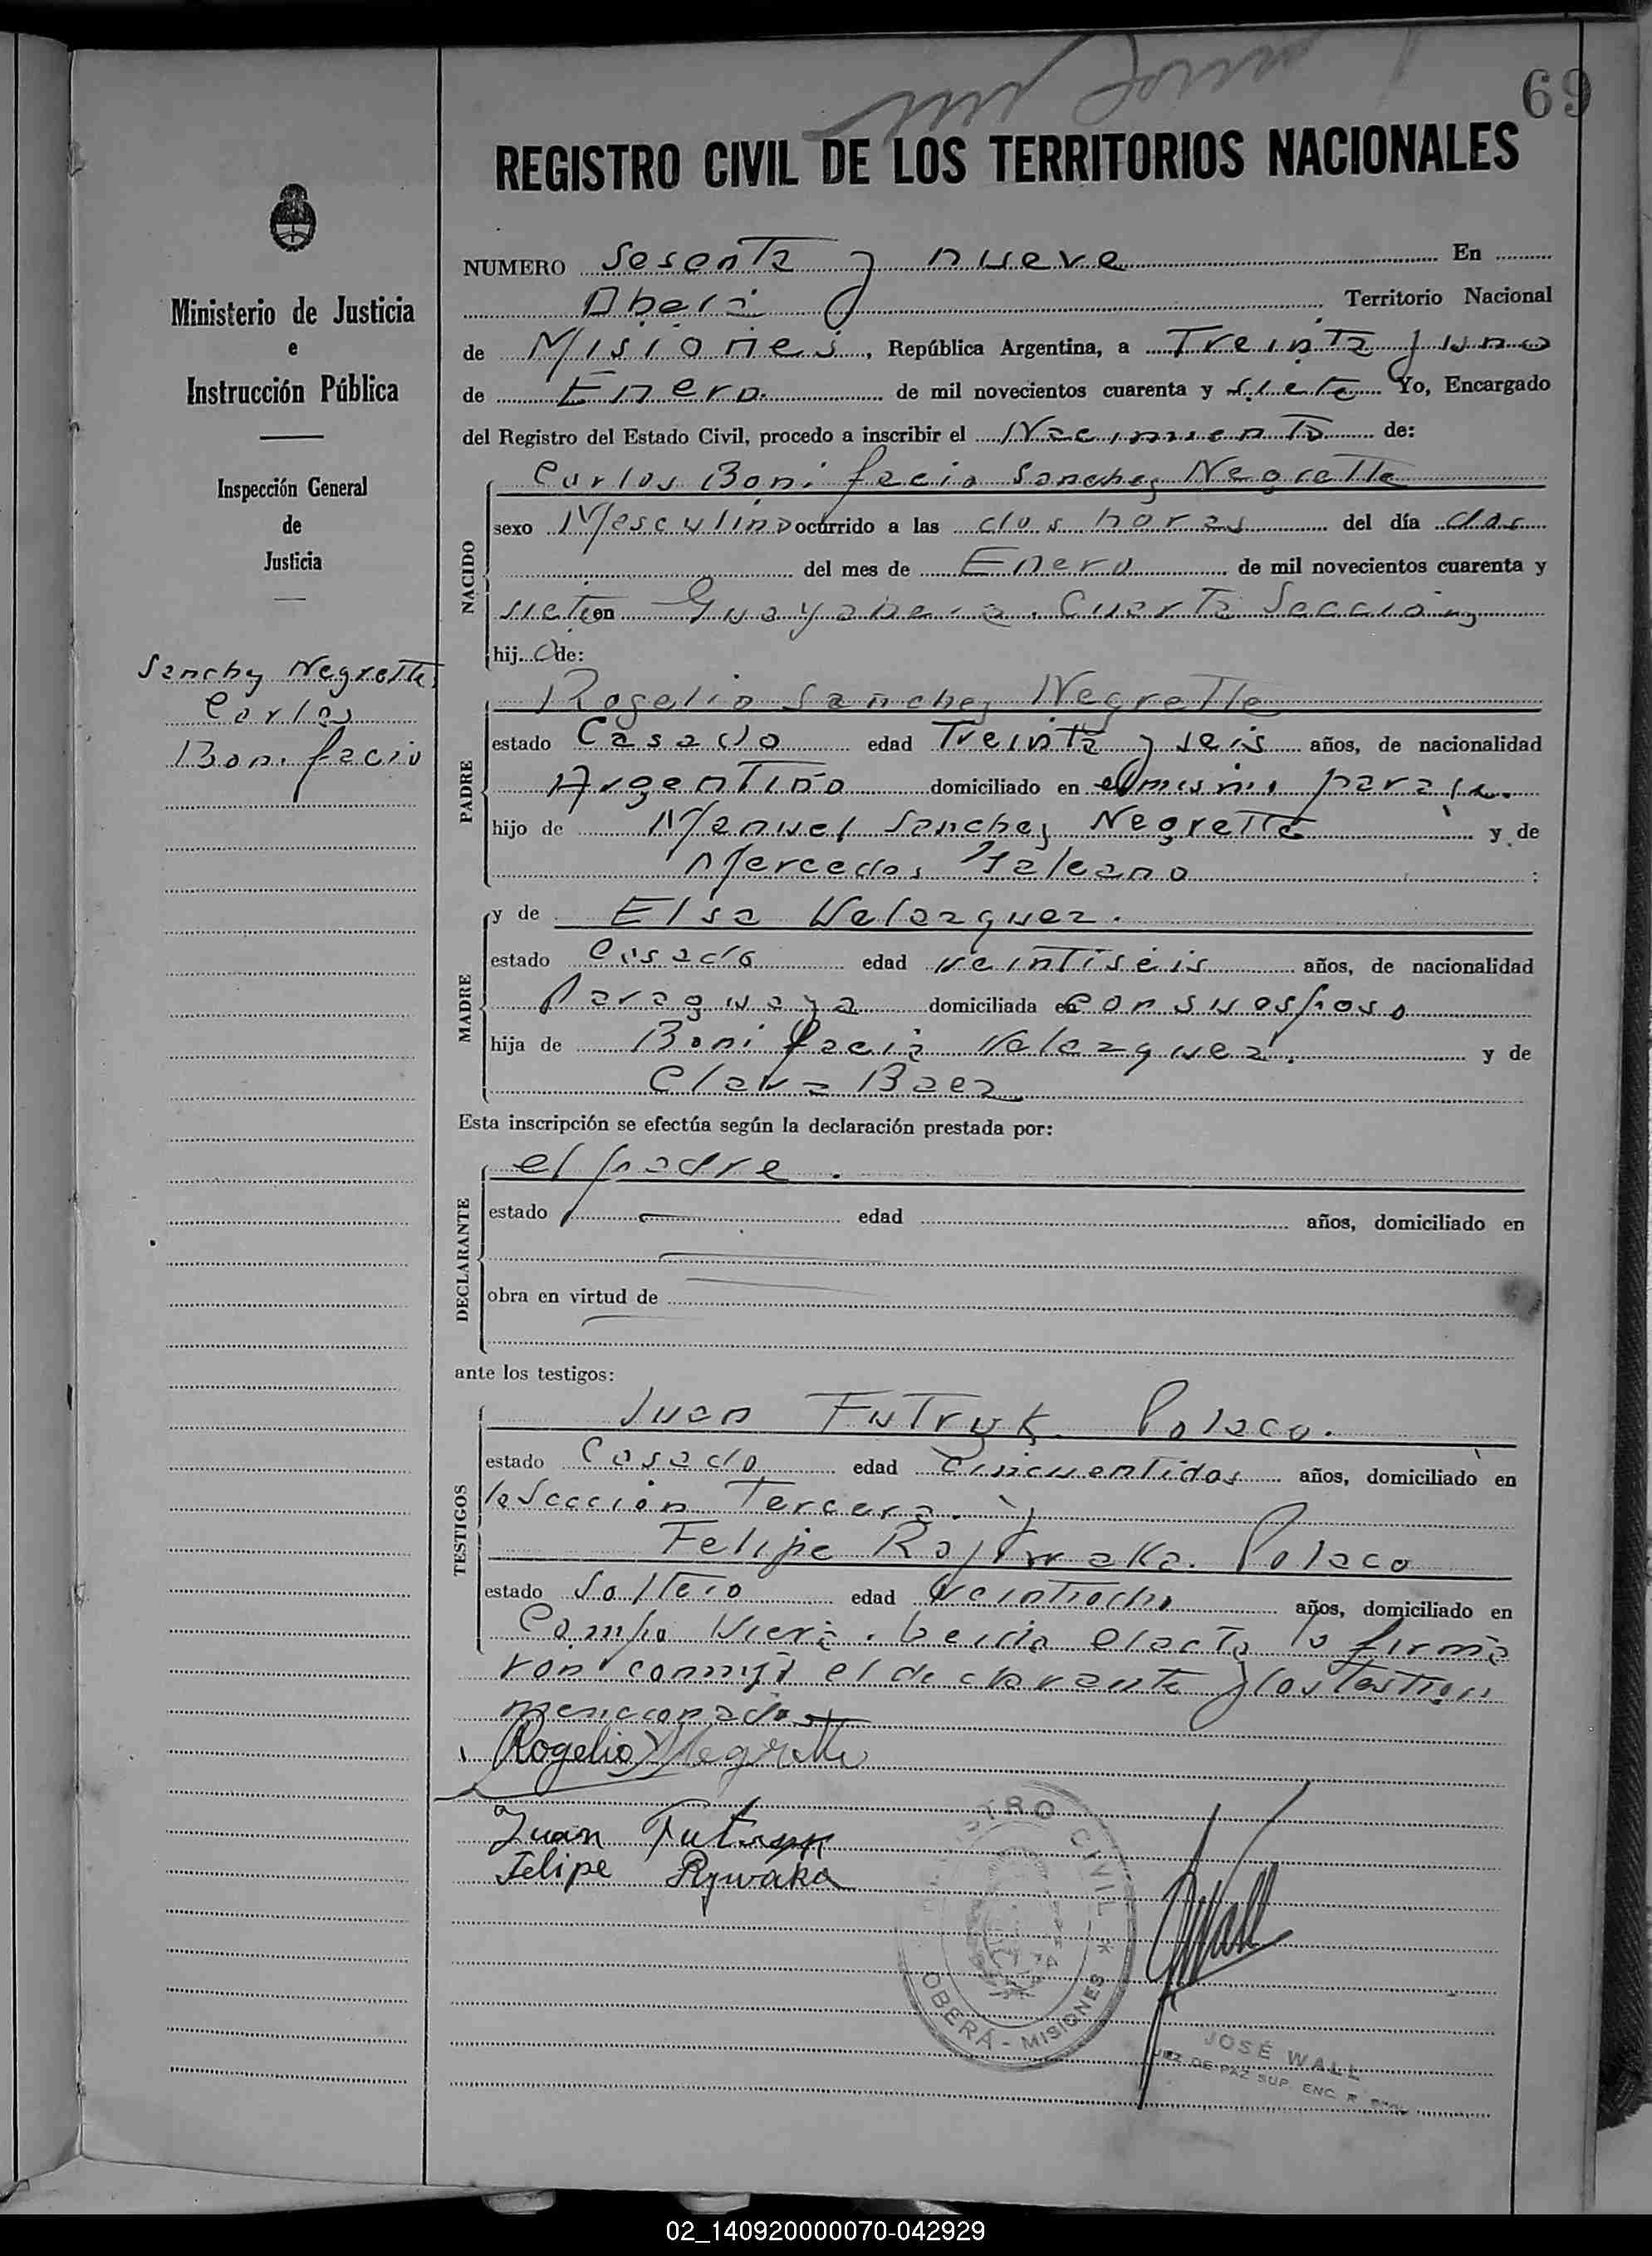 69
REGISTRO CIVIL DE LOS TERRITORIOS NACIONALES
NUMERO Sesenta y nueve En
Oberá Territorio Nacional
de Misiones, República Argentina, a Treinta y uno
de Enero de mil novecientos cuarenta y siete Yo, Encargado
del Registro del Estado Civil, procedo a inscribir el Nacimiento de:
NACIDO
Carlos Bonifacio Sanchez Negrette
sexo Masculino ocurrido a las dos horas del día dos
del mes de Enero de mil novecientos cuarenta y
siete en Guayaberá. Cuarta Sección
hij o de:
PADRE
Rogelio Sanchez Negrette
estado Casado edad Treinta y seis años, de nacionalidad
Argentino domiciliado en el mismo paraje.
hijo de Manuel Sanchez Negrette y de
Mercedes Galeano
MADRE
y de Elsa Velazquez.
estado Casada edad veintiseis años, de nacionalidad
Paraguaya domiciliada en con su esposo
hija de Bonifacia Velazquez. y de
Clara Baez
Esta inscripción se efectúa según la declaración prestada por:
DECLARANTE
el padre.
estado edad años, domiciliado en
obra en virtud de
ante los testigos:
TESTIGOS
Juan Futryk. Polaco.
estado Casado edad Cincuentidos años, domiciliado en
la Sección Tercera. y
Felipe Polaco
estado Soltero edad Veintiocho años, domiciliado en
Campo Viera. Leida el acta la firma
ron conmigo el declarante y los testigos
mencionados
Rogelio S Negrette
Juan Futryk
Felipe Rywaka
Ministerio de Justicia
e
Instrucción Pública
Inspección General
de
Justicia
Sanchez Negrette
Carlos
Bonifacio
REGISTRO CIVIL
OBERÁ - MISIONES
JWall
JOSÉ WALL
JUEZ DE PAZ SUP. ENC. R.
02_140920000070-042929